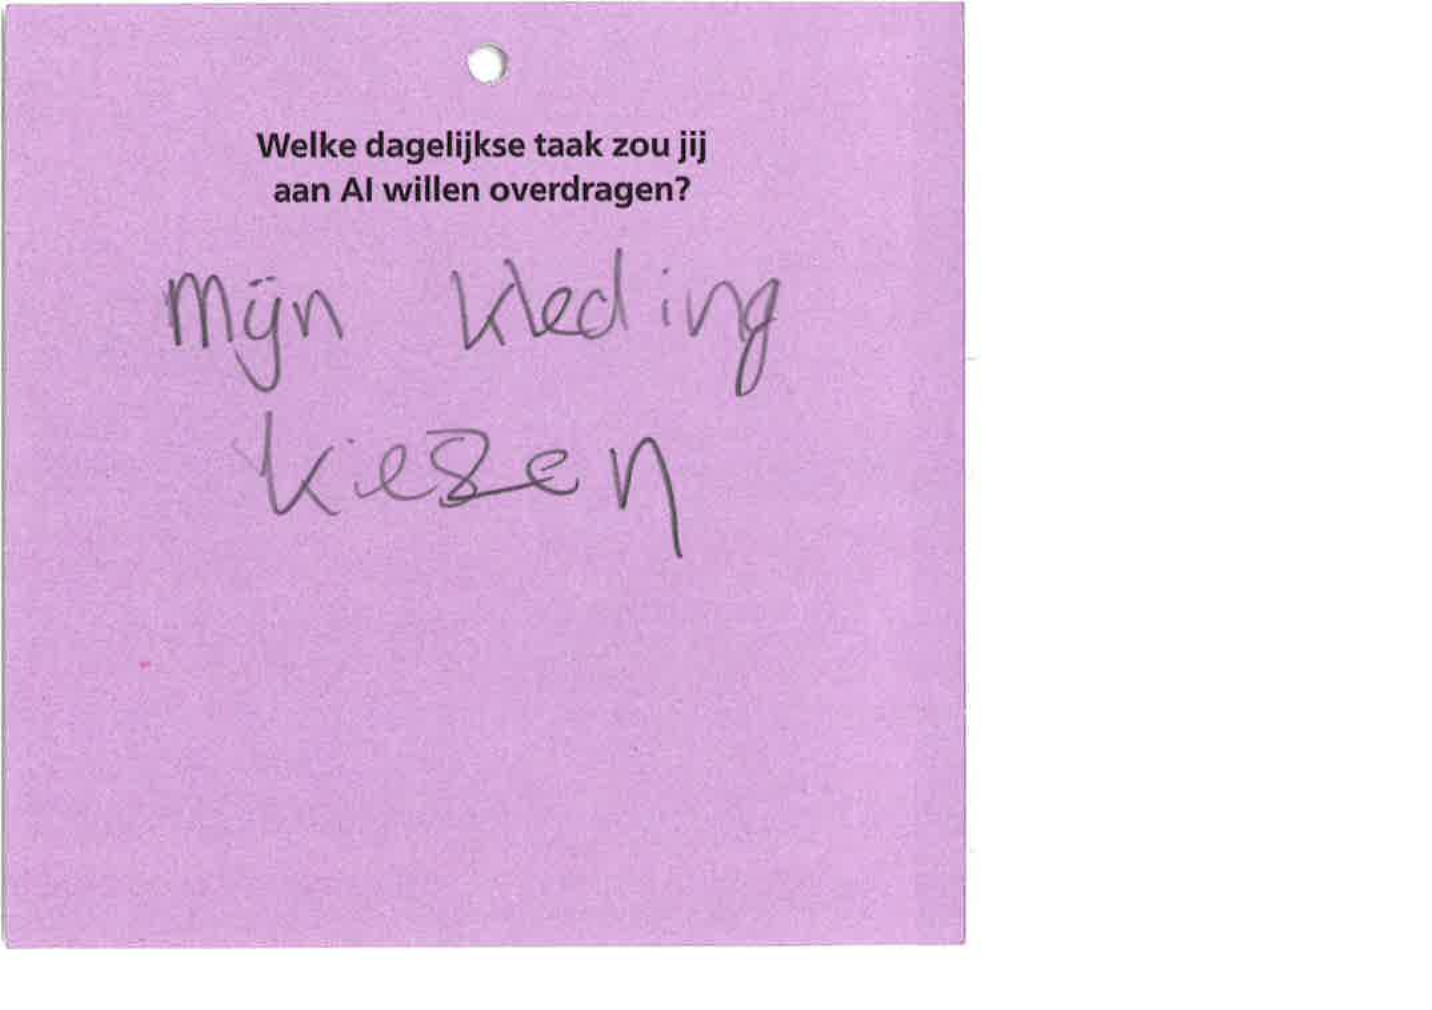 Welke dagelijkse taak zou jij
aan AI willen overdragen?
Mijn kleding
kiezen